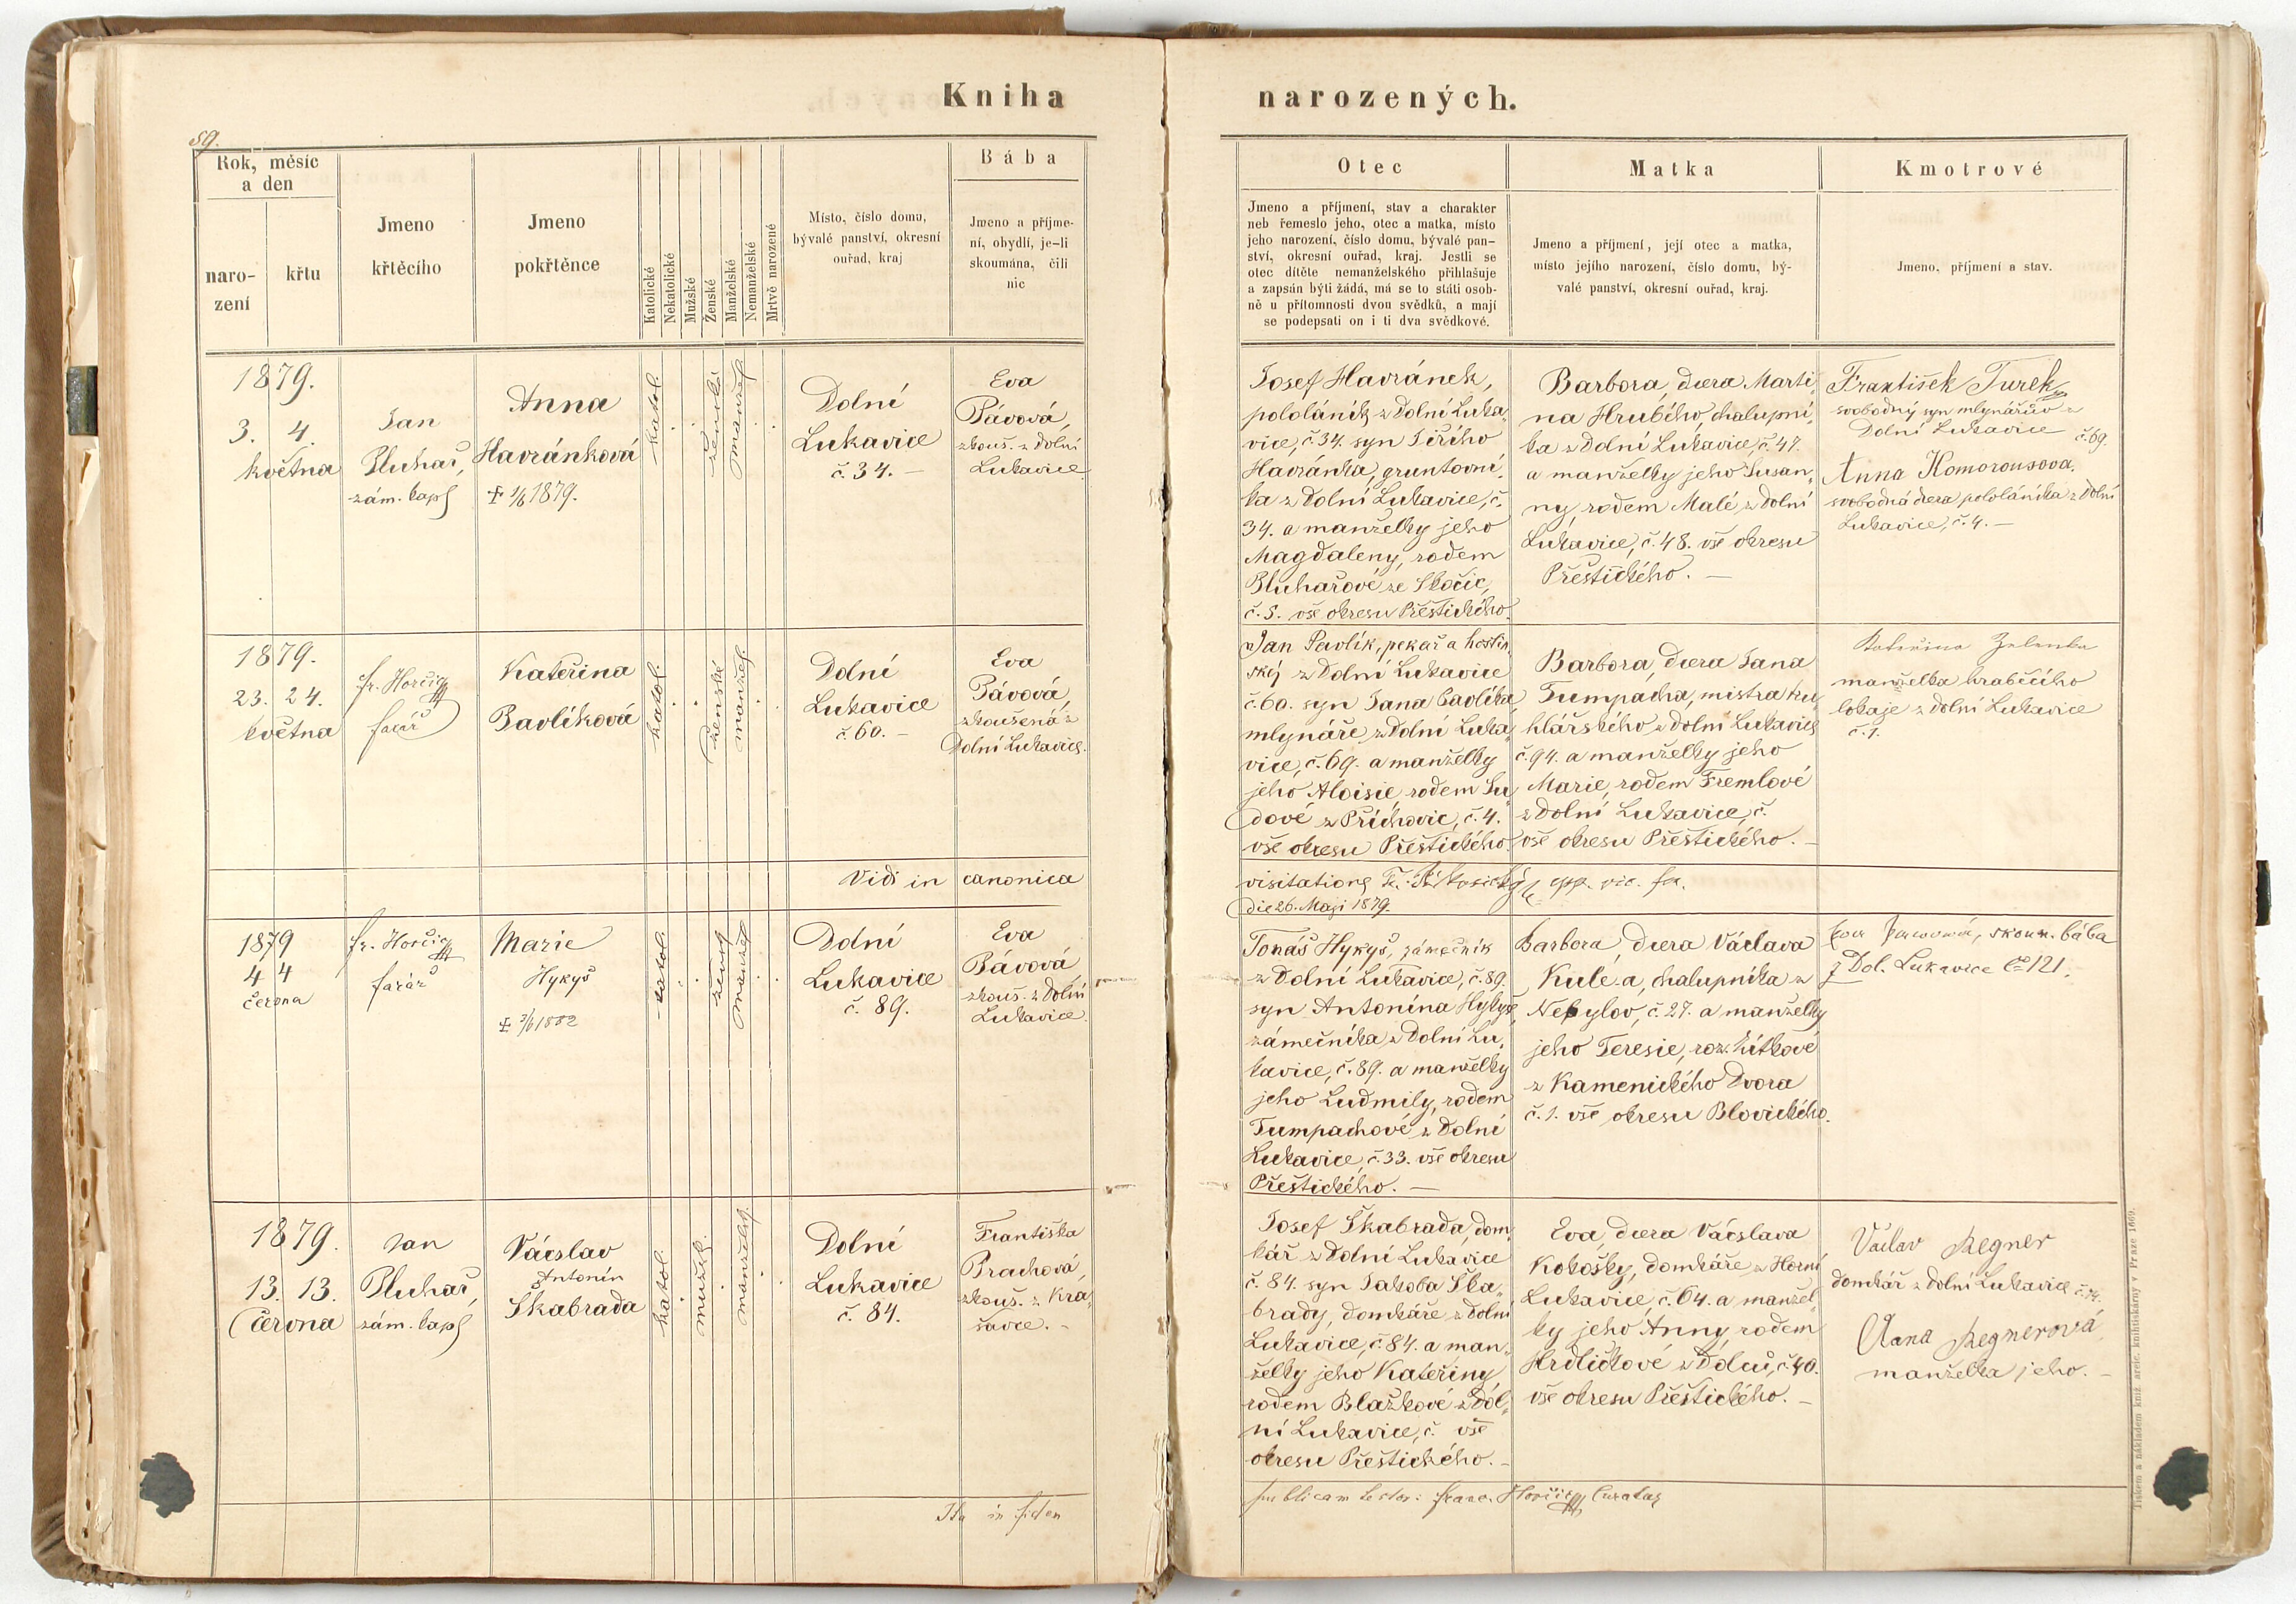 Kniha
narozených.
89.
Rok, měsíc
a den
naro-
zení
křtu
Jmeno
křtěcího
Jmeno
pokřtěnce
Katolické
Nekatolické
Mužské
Ženské
Manželské
Nemanželské
Mrtvě narozené
Místo, číslo domu,
bývalé panství, okresní
ouřad, kraj
Bába
Jmeno a příjme-
ní, obydlí, je-li
skoumána, čili
nic
Otec
Jmeno a příjmení, stav a charakter
neb řemeslo jeho, otec a matka, místo
jeho narození, číslo domu, bývalé pan-
ství, okresní ouřad, kraj. Jestli se
otec dítěte nemanželského přihlašuje
a zapsán býti žádá, má se to státi osob-
ně u přítomnosti dvou svědků, a mají
se podepsati on i ti dva svědkové.
Matka
Jmeno a příjmení, její otec a matka,
místo jejího narození, číslo domu, bý-
valé panství, okresní ouřad, kraj.
Kmotrové
Jmeno, příjmení a stav.
1879.
3. 4.
května
Jan
Pluhař,
zám. kapl
Anna
Havránková
+ 1/6 1879.
katol.
ženské
manžel.
Dolní
Lukavice
č. 34. –
Eva
Pávová,
zkouš. z Dolní
Lukavice
Josef Havránek,
pololáník z Dolní Luka,,
vice, č. 34. syn Jiřího
Havránka, gruntovní,,
ka z Dolní Lukavice, č.
34. a manželky jeho
Magdaleny, rodem
Pluhařové ze Skočic,
č. 5. vše okresu Přeštického.
Barbora, dcera Marti,,
na Hrubého, chalupní,,
ka z Dolní Lukavice, č. 47.
a manželky jeho Susan,,
ny, rodem Malé z Dolní
Lukavice, č. 48. vše okresu
Přeštického. –
František Turek
svobodný syn mlynářův z
Dolní Lukavice č. 69.
Anna Komorousova.
svobodná dcera pololáníka z Dolní
Lukavice, č. 4. –
1879.
23. 24.
května
fr. Horčic
farář
Kateřina
Pavlíková
katol.
ženské
manžel.
Dolní
Lukavice
č. 60. –
Eva
Pávová,
zkoušená z
Dolní Lukavice.
Jan Pavlík, pekař a hostin,,
ský z Dolní Lukavice
č. 60. syn Jana Pavlíka
mlynáře z Dolní Luka,,
vice, č. 69. a manželky
jeho Aloisie, rodem Su,,
dové z Příchovic, č. 4.
vše okresu Přeštického.
Barbora, dcera Jana
Tumpacha, mistra tru,,
hlářského z Dolní Lukavice
č. 94. a manželky jeho
Marie, rodem Fremlové
z Dolní Lukavice, č.
vše okresu Přeštického. –
Kateřina Zelenka
manželka hraběcího
lokaje z Dolní Lukavice
č. 1.
Vidi in canonica
visitatione
die 26. Maji 1879.
1879
4 4
června
fr. Horčic
farář
Marie
Hykyš
+ 3/6 1882
katol.
žensk.
manžel.
Dolní
Lukavice
č. 89.
Eva
Pávová
zkouš. z Dolní
Lukavice.
Tomáš Hykyš, zámečník
z Dolní Lukavice, č. 89.
syn Antonína Hykyše,
zámečníka z Dolní Lu,,
kavice, č. 89. a manželky
jeho Ludmily, rodem
Tumpachové z Dolní
Lukavice, č. 33. vše okresu
Přeštického. –
Barbora, dcera Václava
chalupníka z
Nebylov, č. 27. a manželky
jeho Teresie, roz. Žítkové
z Kamenického Dvora
č. 1. vše okresu Blovického.
skoum. bába
z Dol. Lukavice č. 121.
1879.
13. 13.
června
Jan
Pluhař,
zám. kapl
Václav
Antonín
Škabrada
katol.
mužsk.
manželsk.
Dolní
Lukavice
č. 84.
Františka
Prachová,
zkouš. z Kra,,
šovce. –
Josef Škabrada, dom,,
kář z Dolní Lukavice
č. 84. syn Jakoba Ška,,
brady, domkáře z Dolní
Lukavice, č. 84. a man,,
želky jeho Kateřiny
rodem Blažkové z Dol,,
ní Lukavice, č. vše
okresu Přeštického. –
Eva, dcera Václava
Kokošky, domkáře z Horní
Lukavice, č. 64. a manžel,,
ky jeho Anny, rodem
Hrdličkové z Dolců, č. 40.
vše okresu Přeštického. –
Václav Regner
domkář z Dolní Lukavice č. 14.
Anna Regnerová
manželka jeho. –
Ita in fidem
publicam testor: franc. Horčic Curatus
Tiskem a nákladem kníž. arcib. knihtiskárny v Praze 1869.